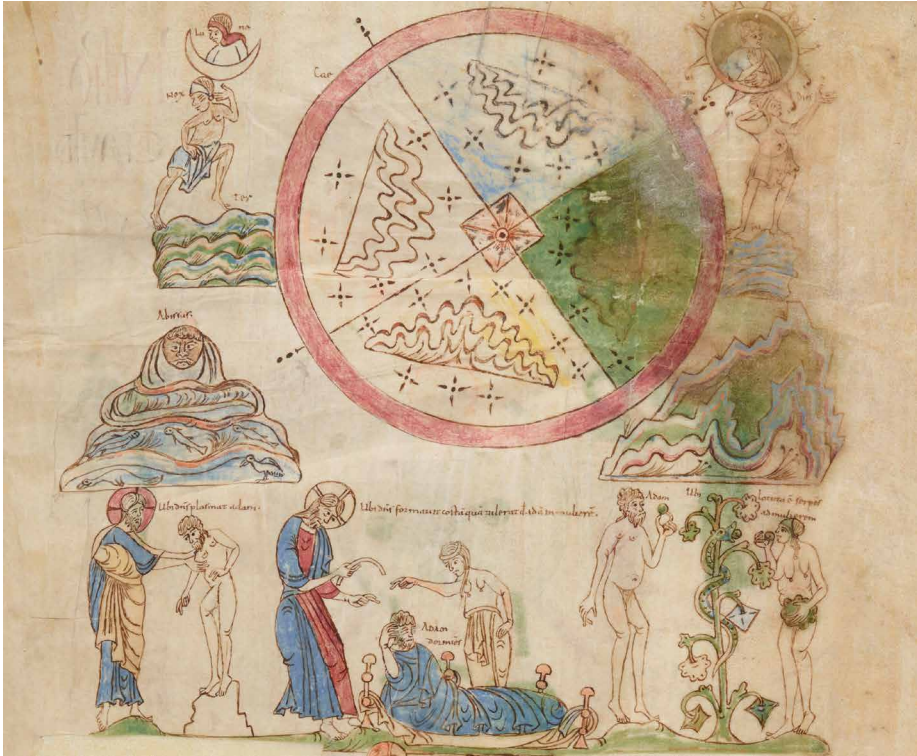 Lu na
Nox
Cae
Dies
ter
Abissus
Ubi dn̄s plasmat adam.
Ubi dn̄s formavit costā quā tulerat d adā in mulierē.
Adam
dormiēs
Adam
Ubi
locutus ē serpēs
ad mulierem